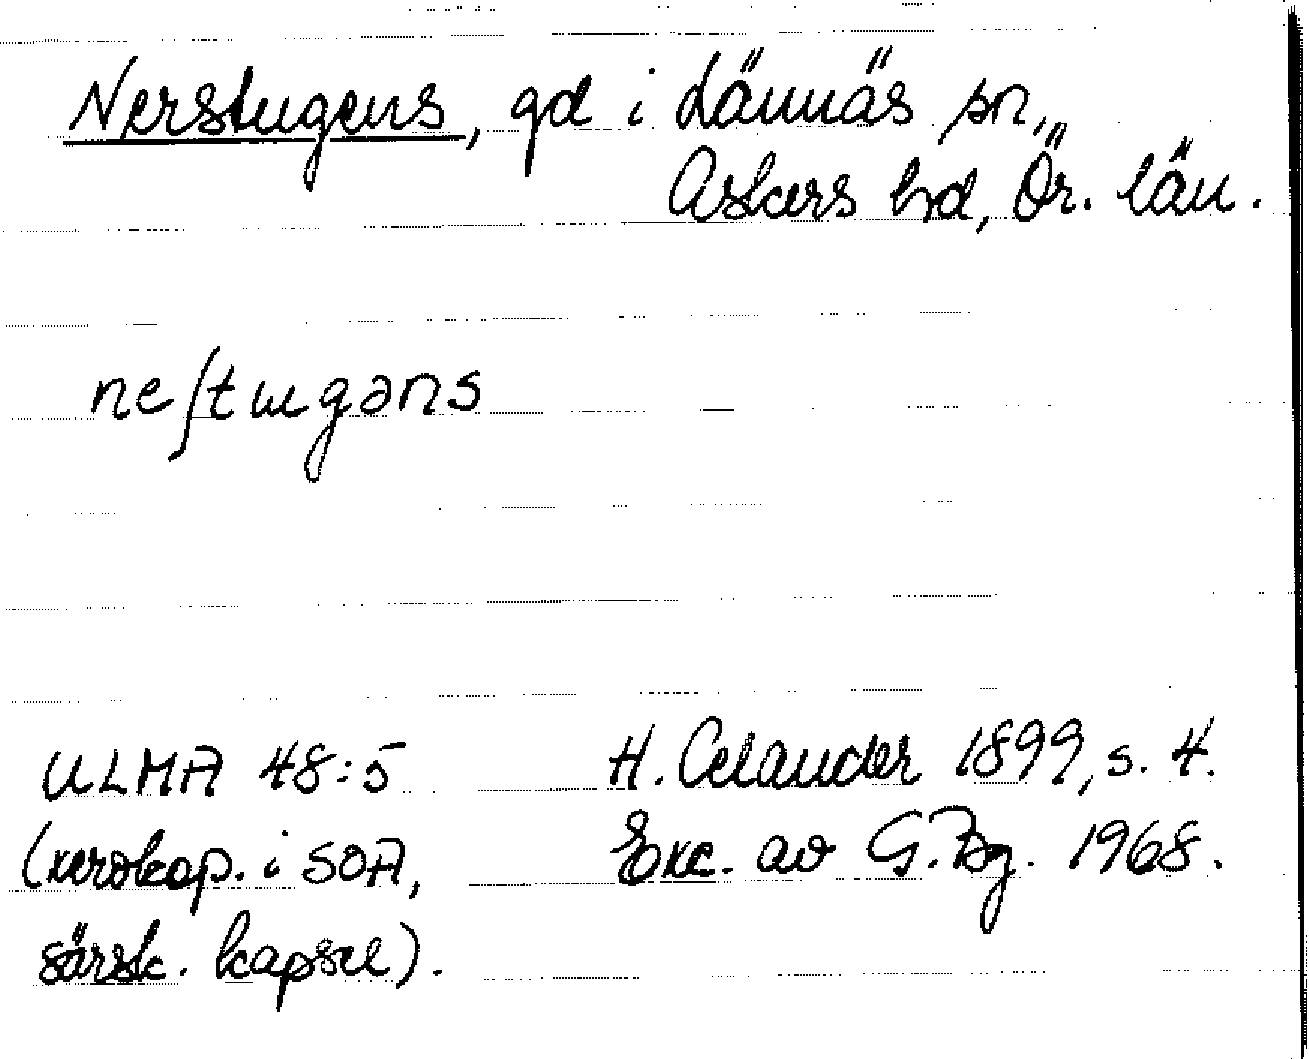 Nerstugens, gd i Lännäs sn,
Askers hd, Ör. län.
neʃtɯgəns
ULMA 48:5
(xerokop. i SOA,
särsk. kapsel).
H. Celander 1899, s. 4.
Exc. av G. Bg. 1968.